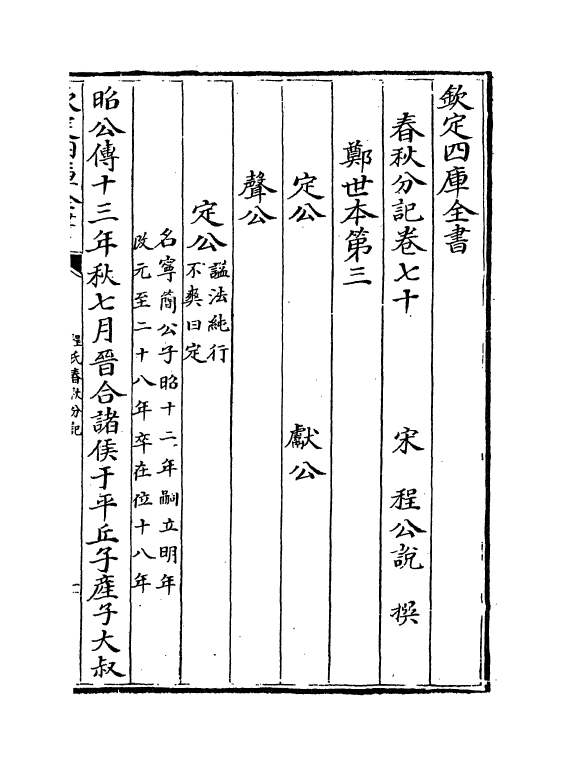 欽定四庫全書
春秋分記卷七十
宋 程公說 撰
鄭世本第三
定公 獻公
聲公
定公 謚法純行
不爽曰定
名寧簡公子昭十二年嗣立明年
改元至二十八年卒在位十八年
昭公傳十三年秋七月晉合諸侯于平丘子產子大叔
欽定四庫全書
程氏春秋分記
一